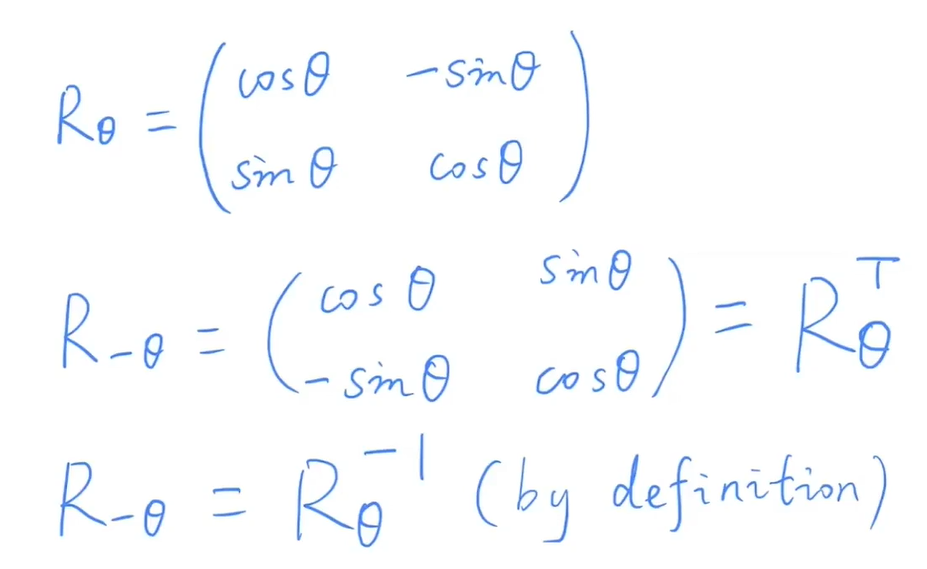 R_θ = ( cosθ  -sinθ
sinθ  cosθ )
R_-θ = ( cosθ  sinθ
-sinθ  cosθ ) = R_θ^T
R_-θ = R_θ^-1 (by definition)